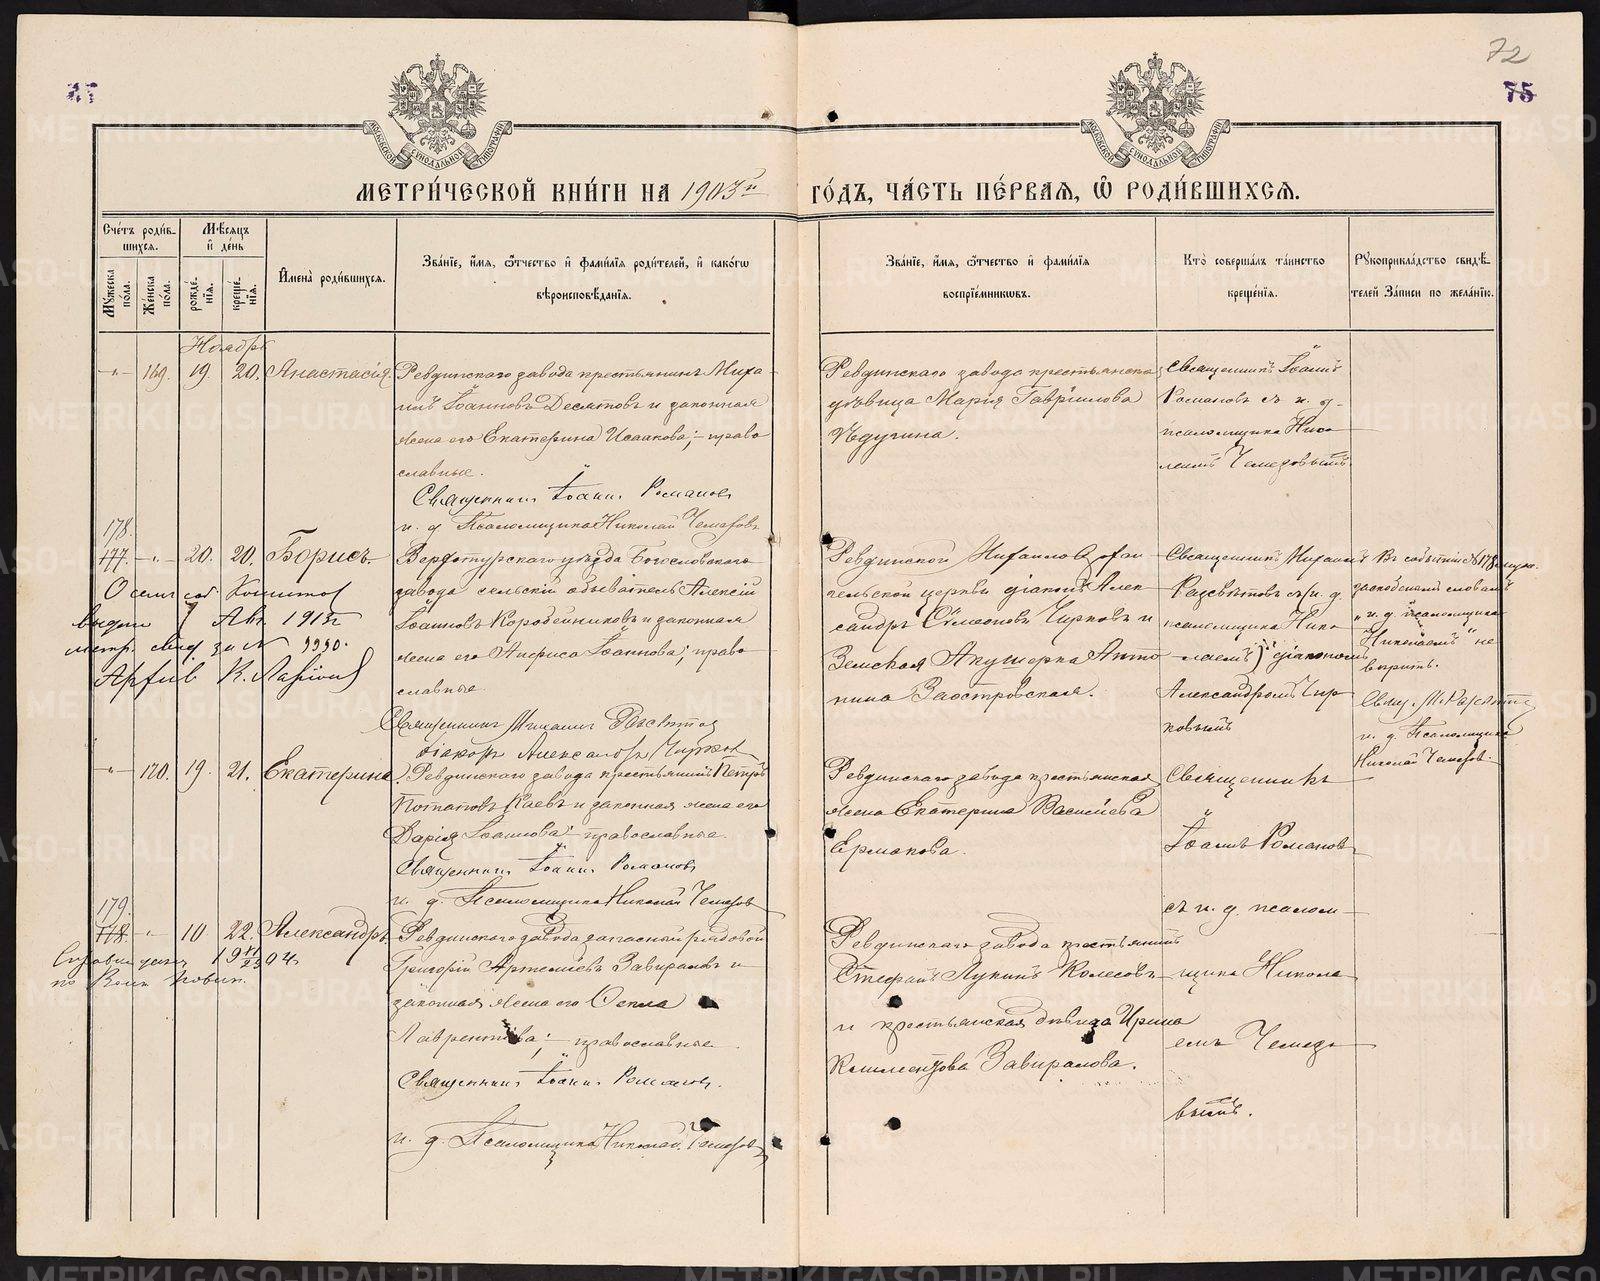 72
75
МЕТРИ́ЧЕСКОЙ КНИ́ГИ НА 1903й ГО́ДЪ, ЧА́СТЬ ПЕ́РВАЯ, Ѡ РОДИ́ВШИХСЯ.
МОСКОВСКОЙ СѴНОДАЛЬНОЙ ТИПОГРАФІИ
МОСКОВСКОЙ СѴНОДАЛЬНОЙ ТИПОГРАФІИ
Сче́тъ роди́вшихся.
Му́жеска по́ла.
Же́нска по́ла.
Мѣ́сяцъ и҆ де́нь
рожде́нїя.
креще́нїя.
И҆мена̀ роди́вшихся.
Зва́нїе, и҆́мя, ѻ҆́тчество и҆ фами́лїя роди́телей, и҆ како́гѡ вѣроисповѣ́данїя.
Зва́нїе, и҆́мя, ѻ҆́тчество и҆ фами́лїя воспрїе́мникѡвъ.
Кто̀ соверша́лъ та́инство креще́нїя.
Рукоприкла́дство свидѣ́телей за́писи по жела́нїю.
Ноябрь
-"- 169. 19 20. Анастасія
Ревдинскаго завода крестьянинъ Миха-
илъ Іоанновъ Десятовъ и законная
жена его Екатерина Исаакова; право-
славные.
Священникъ Іоаннъ Романовъ
и. д. Псаломщика Николай Чемезовъ
Ревдинскаго завода крестьянская
дѣвица Мария Гаврїилова
Священникъ Іоаннъ
Романовъ съ и. д.
псаломщика Нико-
лаемъ Чемезовымъ.
178.
177. -"- 20. 20. Борисъ.
Верхотурскаго уѣзда Богословскаго
завода сельскій обыватель Алексій
Іоанновъ Коробейниковъ и законная
жена его Анфиса Іоаннова; право-
славные.
Священникъ Михаилъ Разсвѣтовъ
діаконъ Александръ Чирковъ
выдано Авг. 1913 г.
метр. свид. за № 9990.
Ревдинской Михаило Архан-
гельской церкви діаконъ Алек-
сандръ Сѵмеоновъ Чирковъ и
Земская Акушерка Анто-
нина Заостровская.
Священникъ Михаилъ
Разсвѣтовъ съ (и. д.
псаломщика Нико-
лаемъ) діакономъ
Александромъ Чир-
ковымъ
Въ событіи № 178 муж.
зачеркнутымъ словамъ
"и. д. псаломщика
Николаемъ" не
вѣрить.
Свящ. М. Разсвѣтовъ
и. д. Псаломщика
Николай Чемезовъ.
-"- 170. 19. 21. Екатерина
Ревдинскаго завода крестьянинъ Петръ
Потаповъ Каевъ и законная жена его
Дарія Іоаннова; православные.
Священникъ Іоаннъ Романовъ
и. д. Псаломщика Николай Чемезовъ
Ревдинскаго завода крестьянская
жена Екатерина Васильева
Ермакова.
Священникъ
Іоаннъ Романовъ
съ и. д. псалом-
щика Никола-
емъ Чемезо-
вымъ.
179.
178. -"- 10 22. Александръ
Ревдинскаго завода запасный рядовой
Григорій Артеміевъ Завираловъ и
законная жена его Ѳекла
Лаврентьева; православные.
Священникъ Іоаннъ Романовъ.
и. д. Псаломщика Николай Чемезовъ
по Воин. повин.
Ревдинскаго завода крестьянинъ
Стефанъ Лукинъ Колесовъ
и крестьянская дѣвица Ирина
Климентова Завиралова.